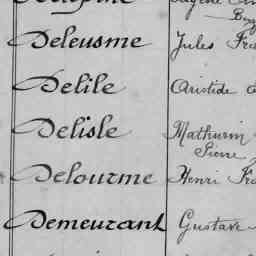 Deleusme Jules
Delile Aristide
Delisle Mathurin
Pierre
Delourme Henri
Demeurant Gustave